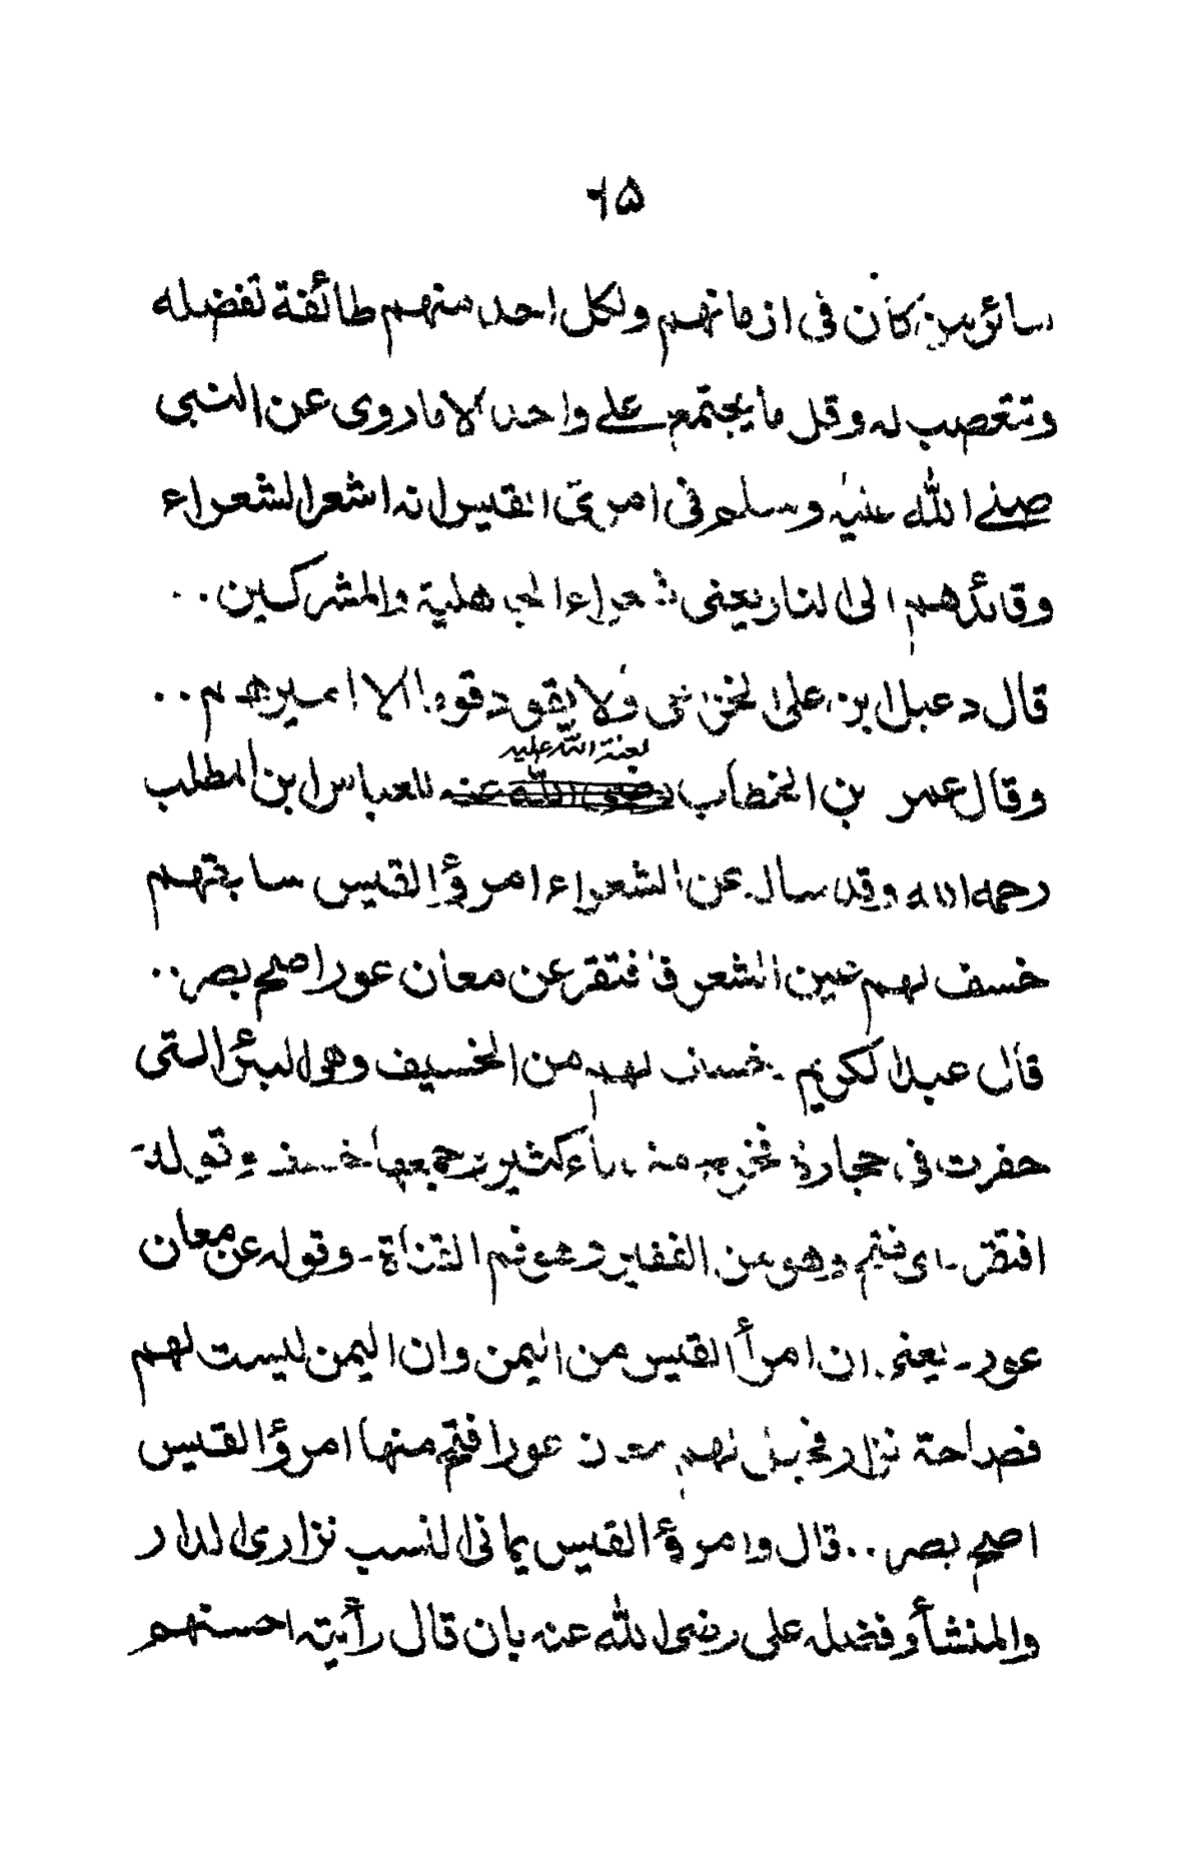 ٦٥
سائر من كان فى ازمانهم ولكل احد منهم طائفة تفضله
وتتعصب له وقل ما يجتمع على واحد الا ما روى عن النبى
صلى الله عليه وسلم فى امرئ القيس انه اشعر الشعراء
وقائدهم الى النار يعنى شعراء الجاهلية والمشركين ..
قال دعبل ابن على الخزاعى ولا يقود قوما الا اميرهم ..
لعنة الله عليه
وقال عمر بن الخطاب رضى الله عنه للعباس ابن المطلب
رحمه الله وقد سال عن الشعراء امرؤ القيس سابقهم
خسف لهم عين الشعر فافتقر عن معان عور اصح بصر ..
قال عبد الكريم - خسف لهم من الخسيف وهو البئر التى
حفرت فى حجارة فخرج منه ماء كثير جمعها خسف وقوله
افتقر - اى فتح وهو من الفقير وهو فم القناة - وقوله عن معان
عور - يعنى ان امرأ القيس من اليمن وان اليمن ليست لهم
فصاحة نزار فجعل لهم معان عور افتح منها امرؤ القيس
اصح بصر .. قال وامرؤ القيس يمانى النسب نزارى الدار
والمنشأ وفضله على رضى الله عنه بان قال رأيته احسنهم